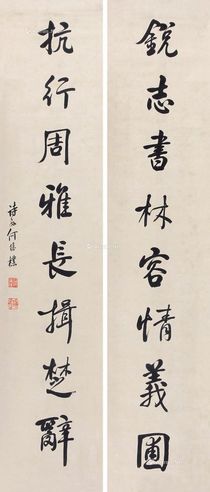 銳志書林容情義圃
抗行周雅長揖楚辭
詩孫何維樸